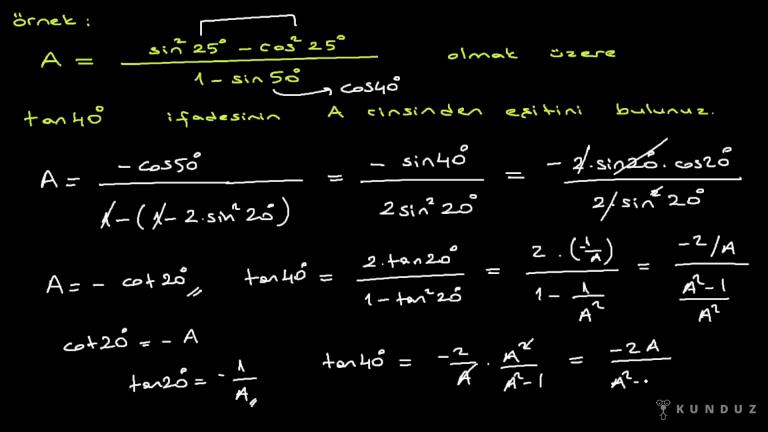 örnek :
A = (sin² 25° - cos² 25°) / (1 - sin 50°) olmak üzere
→ cos40°
tan40° ifadesinin A cinsinden eşitini bulunuz.
A = -cos50° / (1 - (1 - 2.sin² 20°)) = - sin40° / 2sin² 20° = - 2.sin20°.cos20° / 2 sin² 20°
A = - cot20° tan40° = 2.tan20° / (1 - tan² 20°) = 2.(-1/A) / (1 - 1/A²) = (-2/A) / ((A²-1)/A²)
cot20° = - A
tan20° = - 1/A
tan40° = -2/A . A²/(A²-1) = -2A / A²-
KUNDUZ